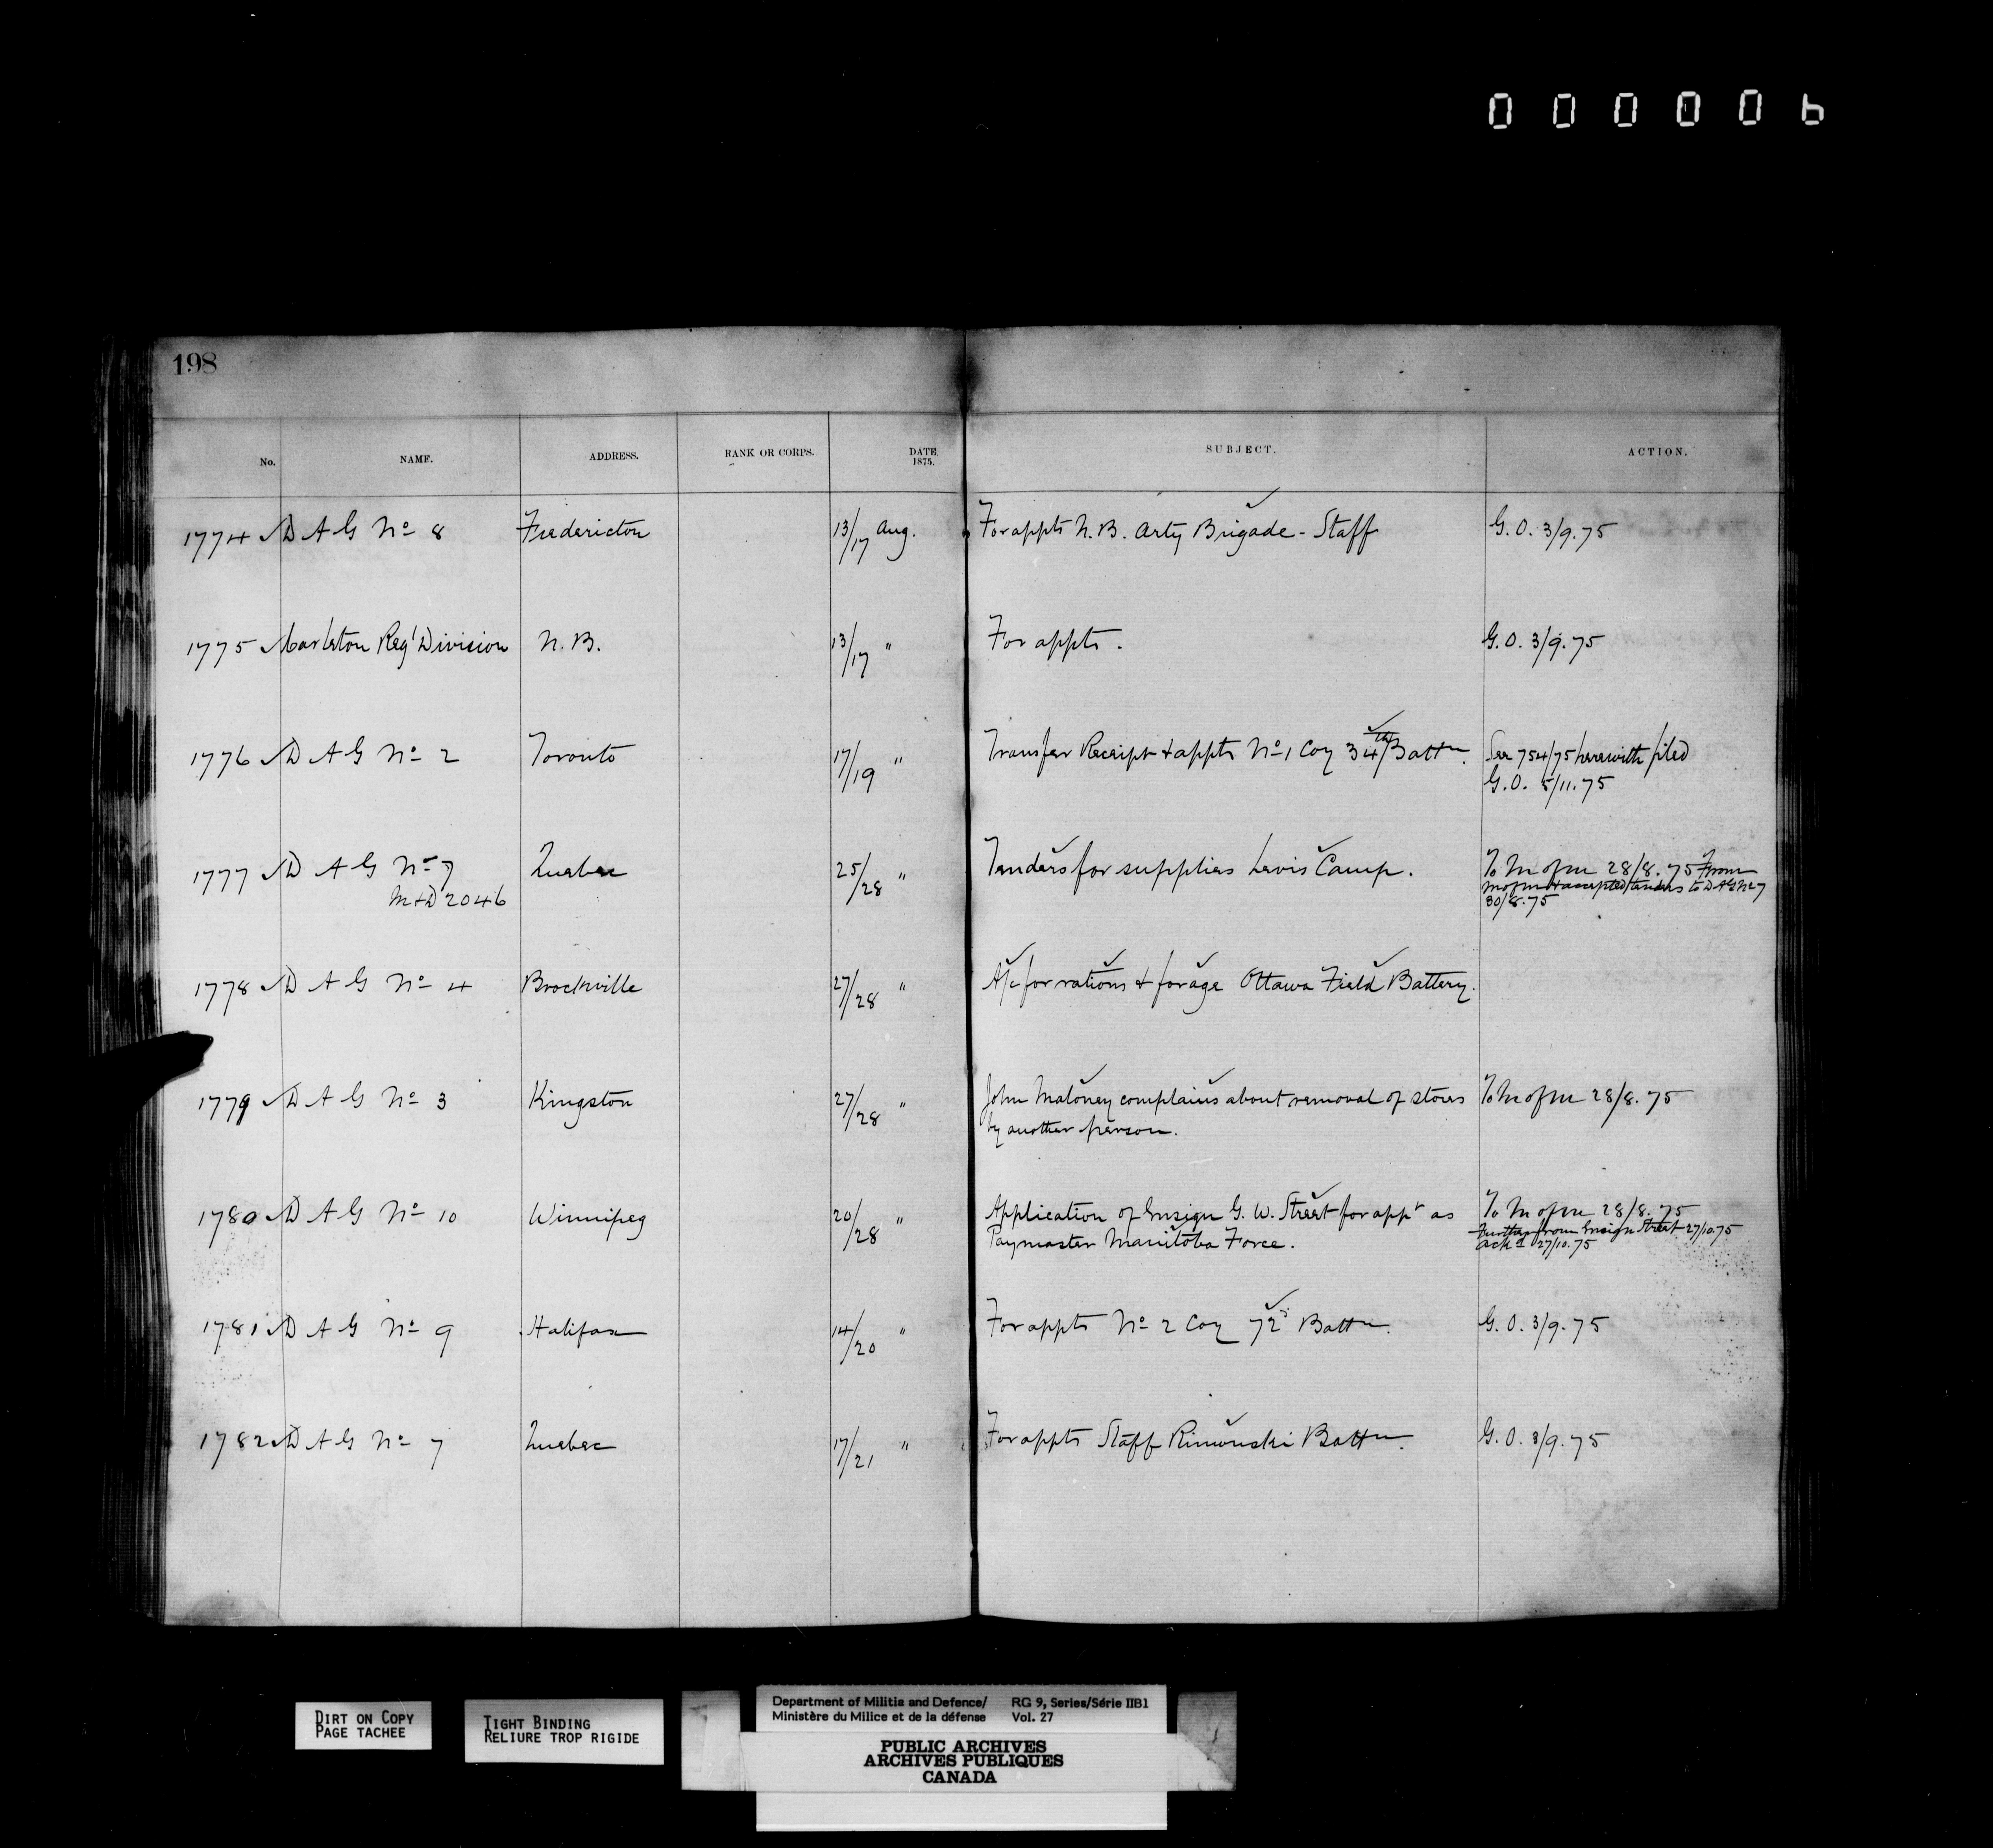 000006
198
No. NAME. ADDRESS. RANK OR CORPS. DATE 1875. SUBJECT. ACTION.
1774 D A G No 8 Fredericton 13/17 Aug. For appts N.B. Arty Brigade - Staff G.O. 3/9.75
1775 Carleton Regl Division N.B. 13/17 " For appts. G.O. 3/9.75
1776 D A G No 2 Toronto 17/19 " Transfer Receipt & appts No 1 Coy 34th Battn. See 754/75 herewith filed
G.O. 5/11.75
1777 D A G No 7 Quebec 25/28 " Tenders for supplies Levis Camp. To M of M 28/8.75 From
M&D 2046 M of M & accepted tenders to DAG No 7
30/8.75
1778 D A G No 4 Brockville 27/28 " A/c for rations & forage Ottawa Field Battery.
1779 D A G No 3 Kingston 27/28 " John Maloney complains about removal of stores To M of M 28/8.75
by another person.
1780 D A G No 10 Winnipeg 20/28 " Application of Ensign G. W. Street for appt as To M of M 28/8.75
Paymaster Manitoba Force. Further from Ensign Street 27/10.75
Ackd 27/10.75
1781 D A G No 9 Halifax 14/20 " For appts No 2 Coy 72d Battn. G.O. 3/9.75
1782 D A G No 7 Quebec 17/21 " For appts Staff Rimouski Battn. G.O. 3/9.75
DIRT ON COPY
PAGE TACHEE
TIGHT BINDING
RELIURE TROP RIGIDE
Department of Militia and Defence/ RG 9, Series/Série IIB1
Ministère du Milice et de la défense Vol. 27
PUBLIC ARCHIVES
ARCHIVES PUBLIQUES
CANADA